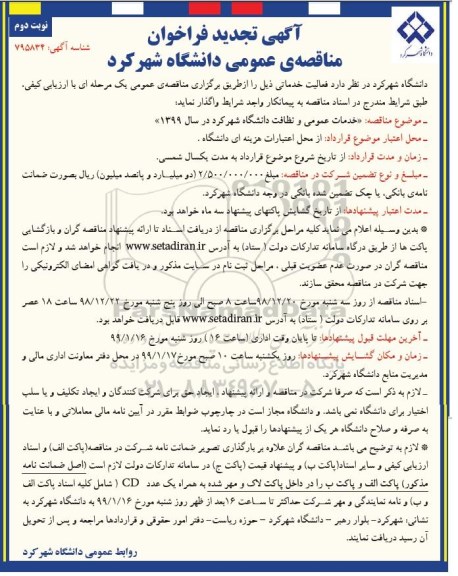 نوبت دوم
شناسه آگهی: ۷۹۵۸۳۴
آگهی تجدید فراخوان
مناقصه‌ی عمومی دانشگاه شهرکرد
دانشگاه شهرکرد در نظر دارد فعالیت خدماتی ذیل را ازطریق برگزاری مناقصه‌ی عمومی یک مرحله ای با ارزیابی کیفی،
طبق شرایط مندرج در اسناد مناقصه به پیمانکار واجد شرایط واگذار نماید:
ـ موضوع مناقصه: «خدمات عمومی و نظافت دانشگاه شهرکرد در سال ۱۳۹۹»
ـ محل اعتبار موضوع قرارداد: از محل اعتبارات هزینه ای دانشگاه .
ـ زمان و مدت قرارداد: از تاریخ شروع موضوع قرارداد به مدت یکسال شمسی.
ـ مبلغ و نوع تضمین شرکت در مناقصه: مبلغ ۲/۵۰۰/۰۰۰/۰۰۰ (دو میلیارد و پانصد میلیون) ریال بصورت ضمانت
نامه‌ی بانکی، یا چک تضمین شده بانکی در وجه دانشگاه شهرکرد.
ـ مدت اعتبار پیشنهادها: از تاریخ گشایش پاکتهای پیشنهاد سه ماه خواهد بود.
* بدین وسیله اعلام می نماید کلیه مراحل برگزاری مناقصه از دریافت اسناد تا ارائه پیشنهاد مناقصه گران و بازگشایی
پاکت ها از طریق درگاه سامانه تدارکات دولت ( ستاد) به آدرس www.setadiran.ir انجام خواهد شد و لازم است
مناقصه گران در صورت عدم عضویت قبلی ، مراحل ثبت نام در سایت مذکور و در یافت گواهی امضای الکترونیکی را
جهت شرکت در مناقصه محقق سازند.
-اسناد مناقصه از روز سه شنبه مورخ ۹۸/۱۲/۲۰ساعت ۸ صبح الی روز پنج شنبه مورخ ۹۸/۱۲/۲۲ ساعت ۱۸ عصر
بر روی سامانه تدارکات دولت ( ستاد) به آدرس www.setadiran.ir قابل دریافت خواهد بود.
ـ آخرین مهلت قبول پیشنهادها: تا پایان وقت اداری (ساعت ۱۶ ) روز شنبه مورخ ۹۹/۱/۱۶
ـ زمان و مکان گشایش پیشنهادها: روز یکشنبه ساعت ۱۰ صبح مورخ۹۹/۱/۱۷ در محل دفتر معاونت اداری مالی و
مدیریت منابع دانشگاه شهرکرد.
ـ لازم به ذکر است که صرفا شرکت در مناقصه و ارائه پیشنهاد ، ایجاد حق برای شرکت کنندگان و ایجاد تکلیف و یا سلب
اختیار برای دانشگاه نمی باشد. و دانشگاه مجاز است در چارچوب ضوابط مقرر در آیین نامه مالی معاملاتی و با عنایت
به صرفه و صلاح دانشگاه هر یک از پیشنهادها را قبول یا رد نماید.
* لازم به توضیح می باشد مناقصه گران علاوه بر بارگذاری تصویر ضمانت نامه شرکت در مناقصه(پاکت الف) و اسناد
ارزیابی کیفی و سایر اسناد(پاکت ب) و پیشنهاد قیمت (پاکت ج) در سامانه تدارکات دولت لازم است (اصل ضمانت نامه
مذکور) پاکت الف و پاکت ب را در داخل پاکت لاک و مهر شده به همراه یک عدد CD ( شامل کلیه اسناد پاکت الف
و ب) و نامه نمایندگی و مهر شرکت حداکثر تا ساعت ۱۶بعد از ظهر روز شنبه مورخ ۹۹/۱/۱۶ به دانشگاه شهرکرد به
نشانی: شهرکرد- بلوار رهبر – دانشگاه شهرکرد – حوزه ریاست- دفتر امور حقوقی و قراردادها مراجعه و پس از تحویل
آن رسید دریافت نمایند.
روابط عمومی دانشگاه شهرکرد